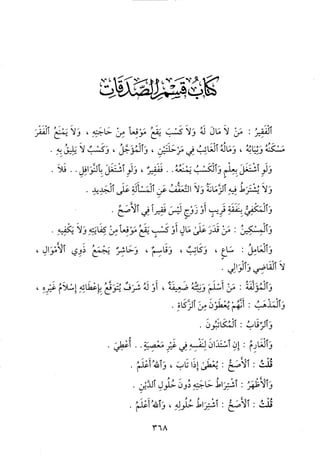 كتاب قسم الصدقات
اَلْفَقِيرُ : مَنْ لاَ مَالَ لَهُ وَلاَ كَسْبَ يَقَعُ مَوْقِعاً مِنْ حَاجَتِهِ ، وَلاَ يَمْنَعُ الْفَقْرَ
مَسْكَنُهُ وَثِيَابُهُ ، وَمَالُهُ الْغَائِبُ فِي مَرْحَلَتَيْنِ ، وَالْمُؤَجَّلُ ، وَكَسْبٌ لاَ يَلِيقُ بِهِ .
وَلَوِ اشْتَغَلَ بِعِلْمٍ وَالْكَسْبُ يَمْنَعُهُ .. فَفَقِيرٌ ، وَلَوِ اشْتَغَلَ بِالنَّوَافِلِ .. فَلاَ .
وَلاَ يُشْتَرَطُ فِيهِ الزَّمَانَةُ وَلاَ التَّعَفُّفُ عَنِ الْمَسْأَلَةِ عَلَى الْجَدِيدِ .
وَالْمَكْفِيُّ بِنَفَقَةِ قَرِيبٍ أَوْ زَوْجٍ لَيْسَ فَقِيراً فِي الأَصَحِّ .
وَالْمِسْكِينُ : مَنْ قَدَرَ عَلَى مَالٍ أَوْ كَسْبٍ يَقَعُ مَوْقِعاً مِنْ كِفَايَتِهِ وَلاَ يَكْفِيهِ .
وَالْعَامِلُ : سَاعٍ ، وَكَاتِبٌ ، وَقَاسِمٌ ، وَحَاشِرٌ يَجْمَعُ ذَوِي الأَمْوَالِ ،
لاَ الْقَاضِي وَالْوَالِي .
وَالْمُؤَلَّفَةُ : مَنْ أَسْلَمَ وَنِيَّتُهُ ضَعِيفَةٌ ، أَوْ لَهُ شَرَفٌ يُتَوَقَّعُ بِإِعْطَائِهِ إِسْلاَمُ غَيْرِهِ ،
وَالْمَذْهَبُ : أَنَّهُمْ يُعْطَوْنَ مِنَ الزَّكَاةِ .
وَالرِّقَابُ : الْمُكَاتَبُونَ .
وَالْغَارِمُ : إِنِ اسْتَدَانَ لِنَفْسِهِ فِي غَيْرِ مَعْصِيَةٍ .. أُعْطِيَ .
قُلْتُ : الأَصَحُّ : يُعْطَى إِذَا تَابَ ، وَاللهُ أَعْلَمُ .
وَالأَظْهَرُ : اشْتِرَاطُ حَاجَتِهِ دُونَ حُلُولِ الدَّيْنِ .
قُلْتُ : الأَصَحُّ : اشْتِرَاطُ حُلُولِهِ ، وَاللهُ أَعْلَمُ .
٣٦٨